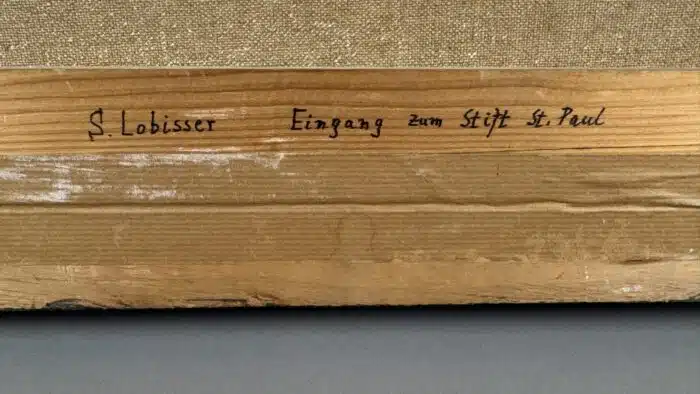 S. Lobisser Eingang zum Stift St. Paul